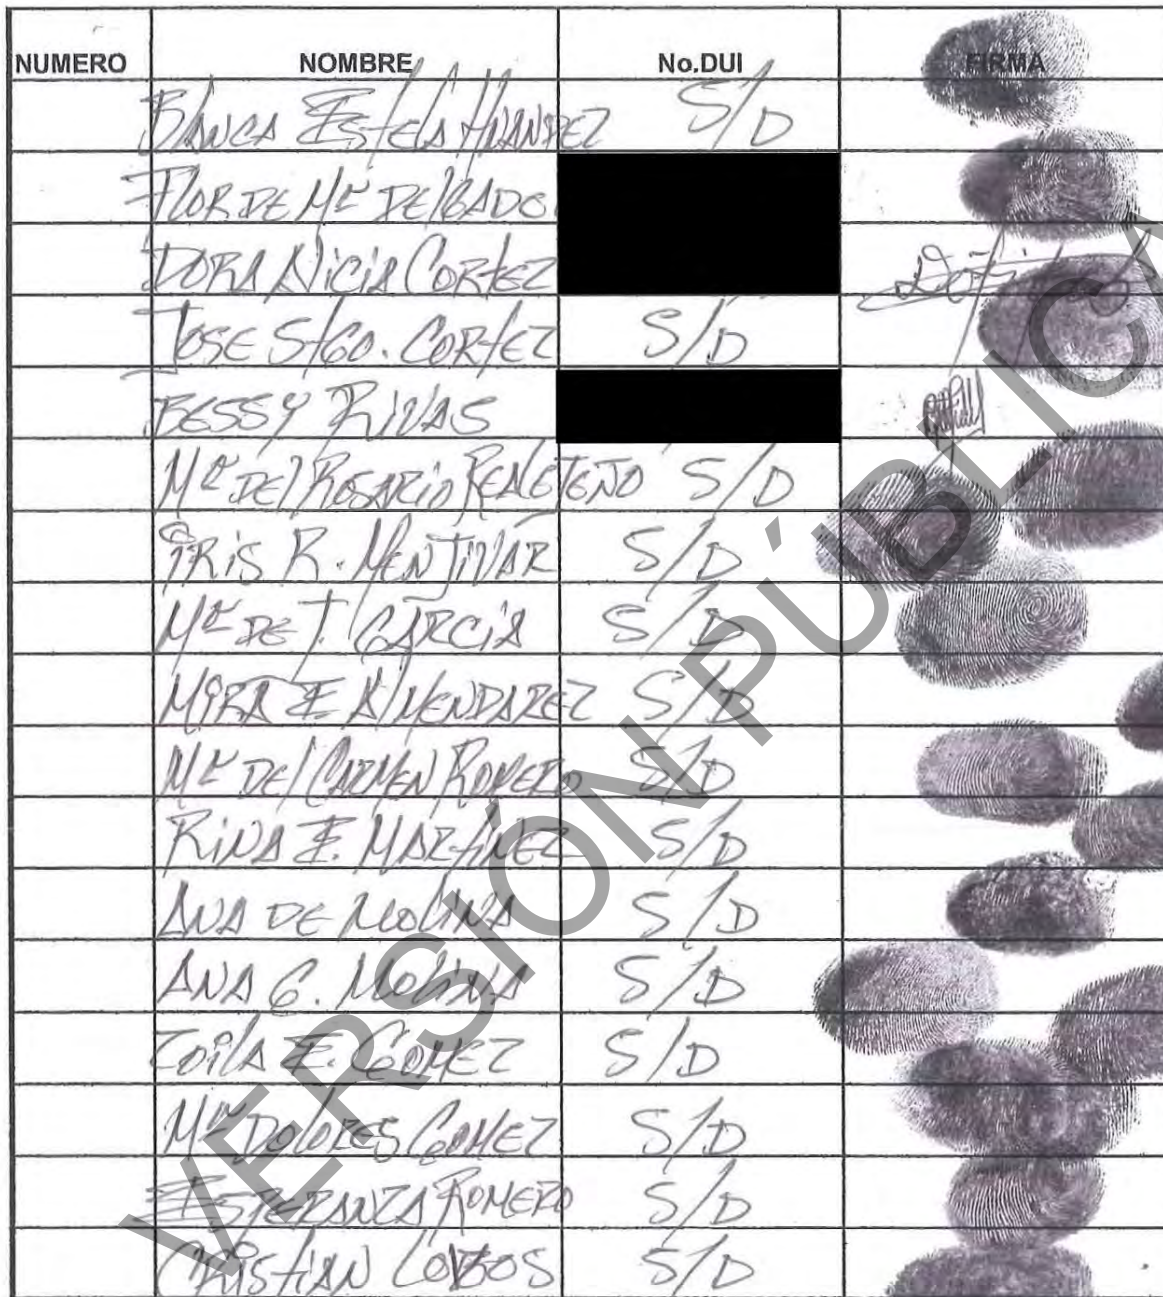 NUMERO NOMBRE No.DUI FIRMA
BLANCA ESTELA HNANDEZ S/D
FLOR DE Mª DELGADO
DORA ALICIA CORTEZ
JOSE STGO. CORTEZ S/D
BESSY RIVAS
Mª DEL ROSARIO S/D
IRIS R. MENJIVAR S/D
Mª DE T. GARCIA S/D
MIRA E ALMENDAREZ S/D
Mª DEL CARMEN ROMERO S/D
RINA E. MARTINEZ S/D
ANA DE MOLINA S/D
ANA G. MOLINA S/D
ZOILA E. GOMEZ S/D
Mª DOLORES GOMEZ S/D
ESPERANZA ROMERO S/D
CRISTIAN LOBOS S/D
VERSIÓN PÚBLICA